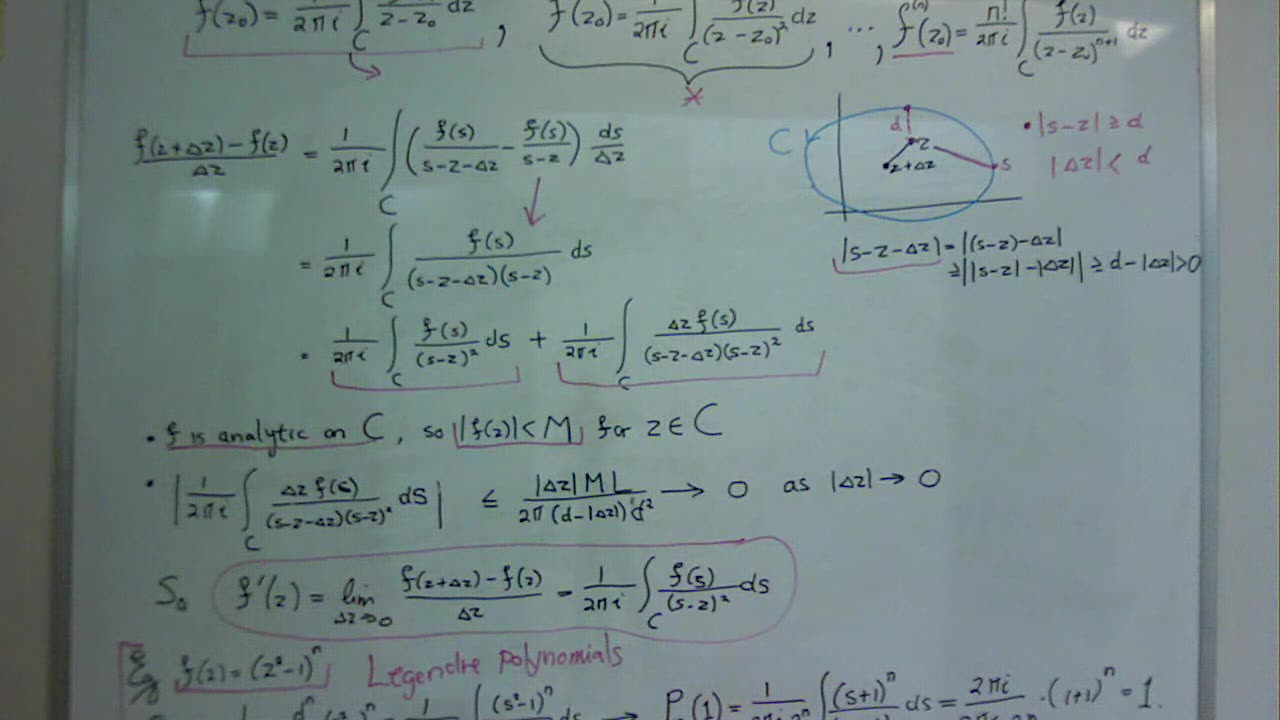 f(z₀) = 1/2πi ∫_C f(z)/(z-z₀) dz , f'(z₀) = 1/2πi ∫_C f(z)/(z-z₀)² dz , ... , f⁽ⁿ⁾(z₀) = n!/2πi ∫_C f(z)/(z-z₀)ⁿ⁺¹ dz
*
(f(z+Δz) - f(z))/Δz = 1/2πi ∫_C (f(s)/(s-z-Δz) - f(s)/(s-z)) ds/Δz
= 1/2πi ∫_C f(s)/((s-z-Δz)(s-z)) ds
= 1/2πi ∫_C f(s)/(s-z)² ds + 1/2πi ∫_C Δz f(s)/((s-z-Δz)(s-z)²) ds
C d z z+Δz s
• |s-z| ≥ d
|Δz| < d
|s-z-Δz| = |(s-z)-Δz|
≥ ||s-z| - |Δz|| ≥ d-|Δz| > 0
• f is analytic on C, so |f(z)| < M for z ∈ C
• |1/2πi ∫_C Δz f(s)/((s-z-Δz)(s-z)²) ds| ≤ |Δz| M L/(2π (d-|Δz|) d²) → 0 as |Δz| → 0
So f'(z) = lim_{Δz→0} (f(z+Δz) - f(z))/Δz = 1/2πi ∫_C f(s)/(s-z)² ds
Eg f(z) = (z²-1)ⁿ Legendre polynomials
(s²-1)ⁿ ds → P (1) = 1/ ∫ (s+1)ⁿ ds = 2πi/ · (1+1)ⁿ = 1.